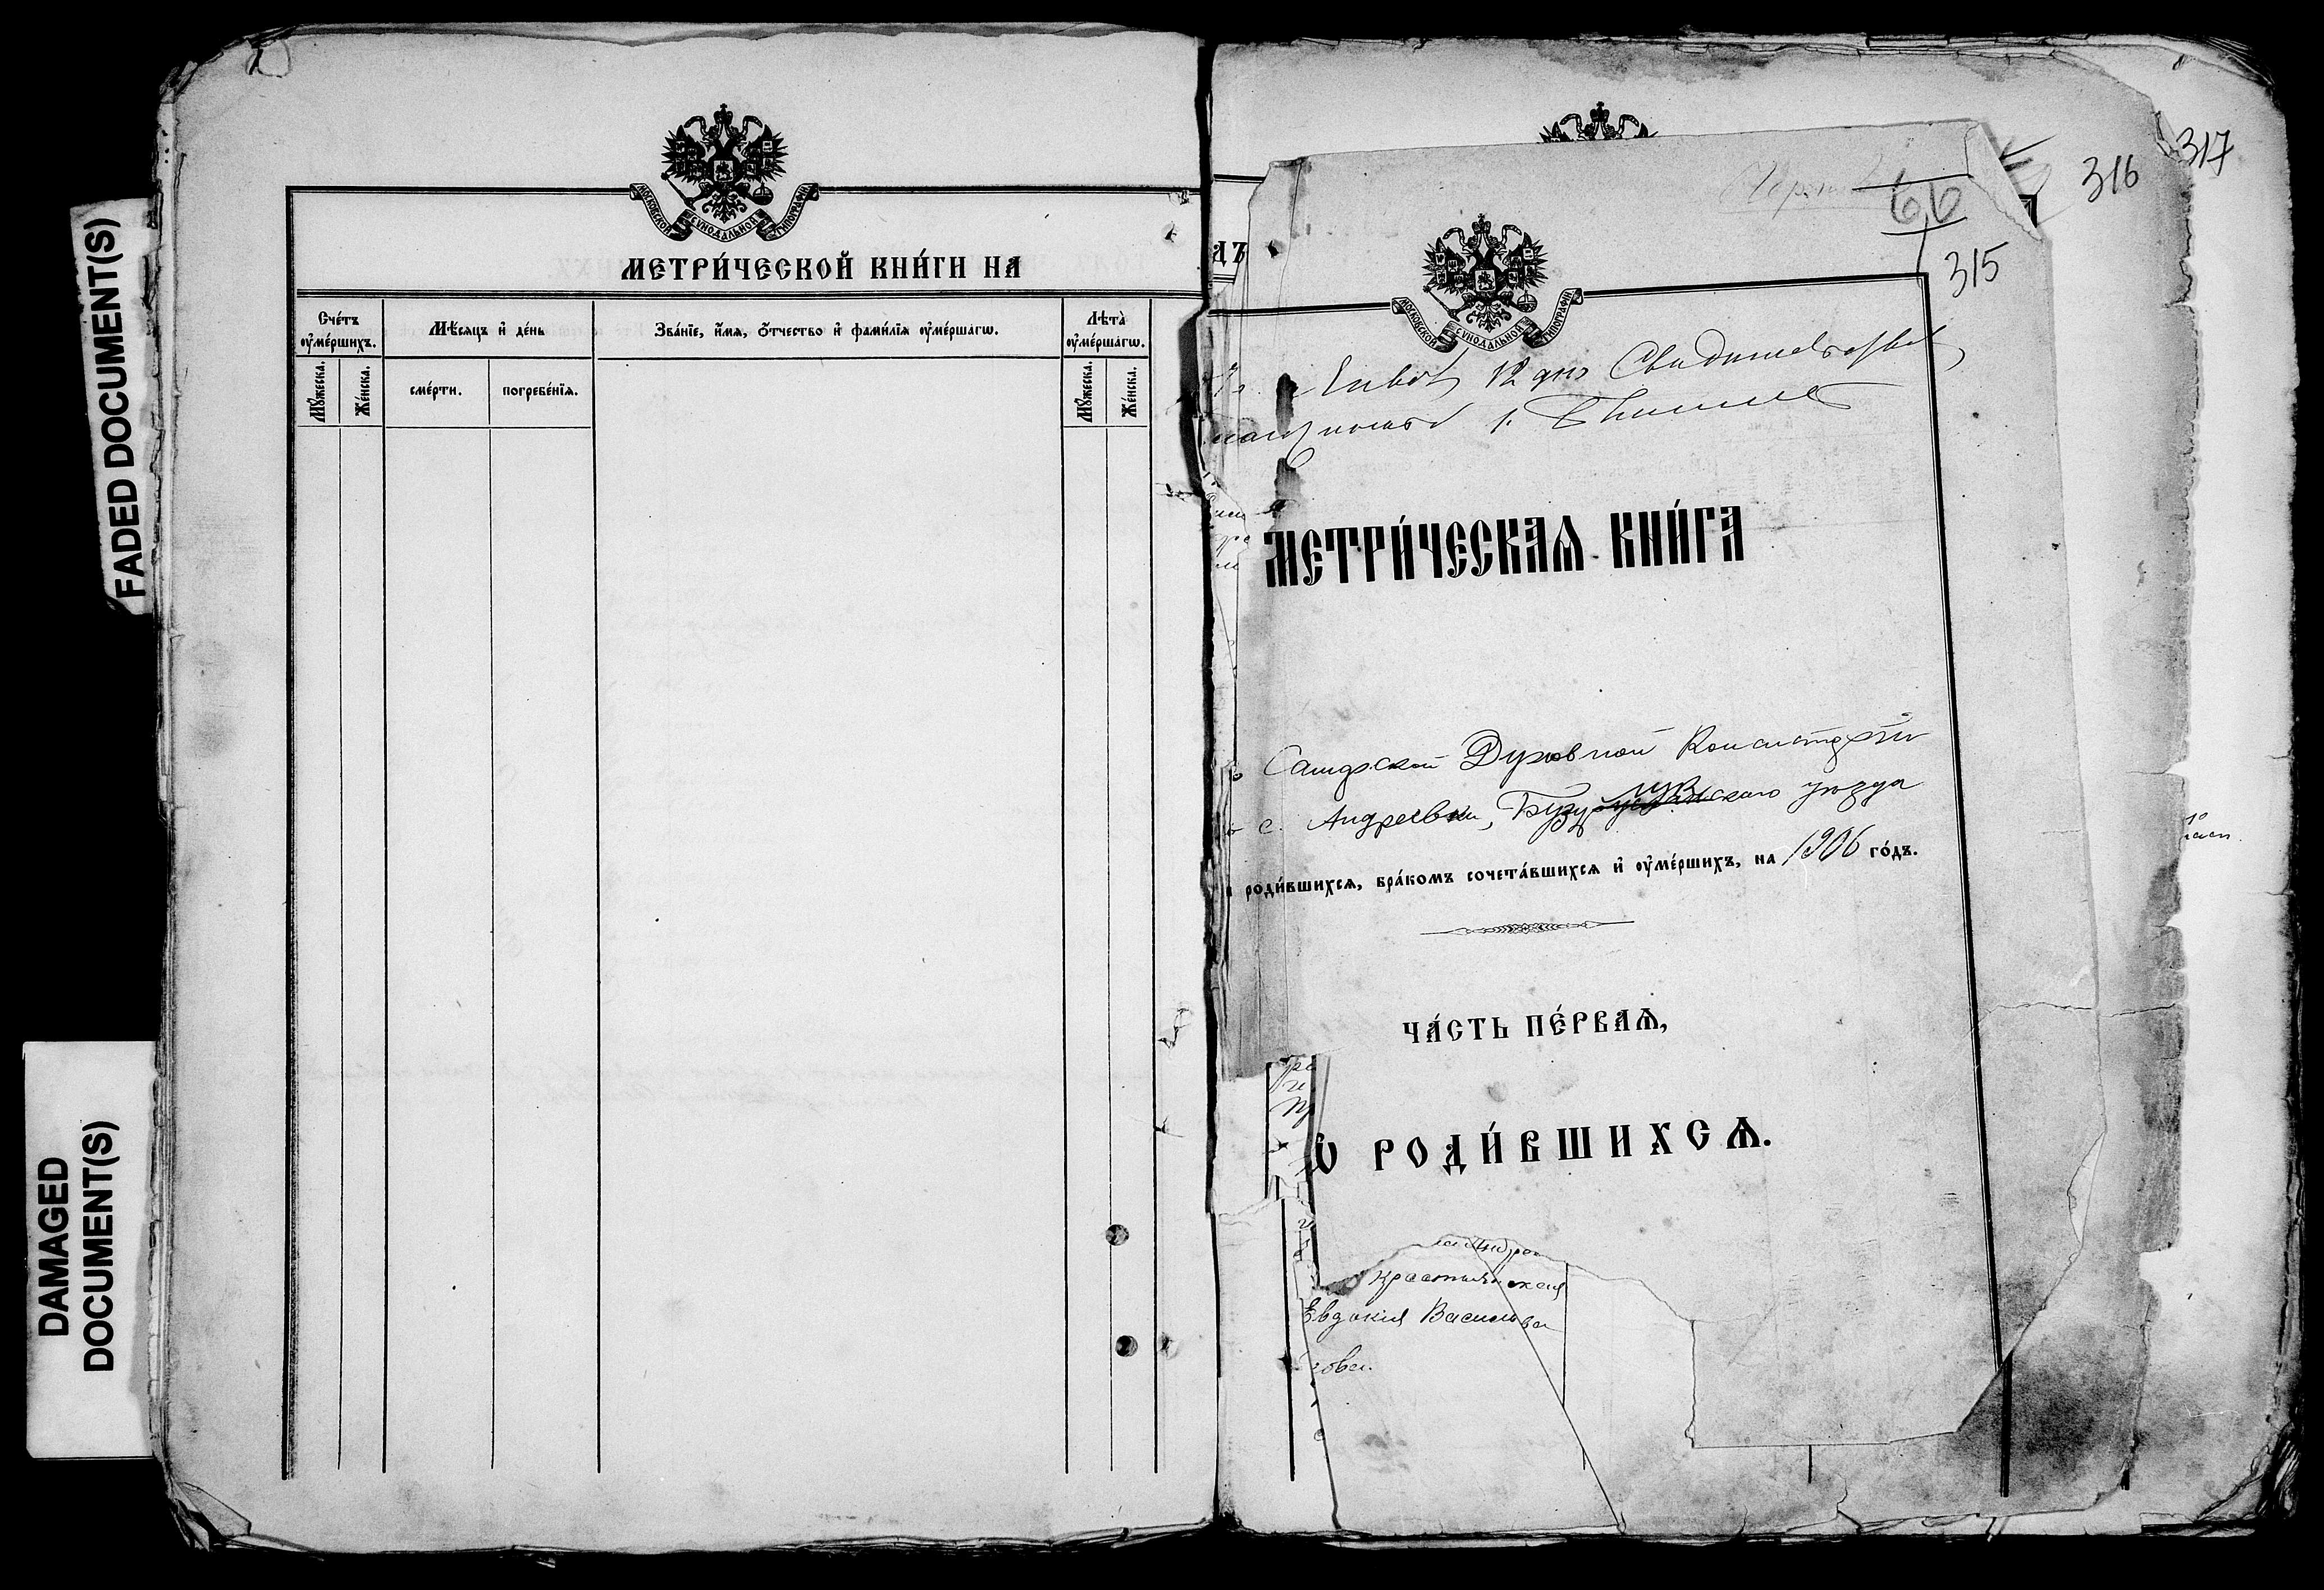 FADED DOCUMENT(S)
DAMAGED
DOCUMENT(S)
МОСКОВСКОЙ СѴНОДАЛЬНОЙ ТИПОГРАФІИ
МЕТРИ́ЧЕСКОЙ КНИ́ГИ НА
Сче́тъ оу҆ме́ршихъ.
Мѣ́сяцъ и҆ де́нь
Зва́нїе, и҆́мѧ, ѻ҆́тчество и҆ фами́лїѧ оу҆ме́ршагѡ.
Лѣта̀ оу҆ме́ршагѡ.
Мꙋ́жеска.
Же́нска.
сме́рти.
погребе́нїѧ.
Мꙋ́жеска.
Же́нска.
317
316
66
315
дъ
МОСКОВСКОЙ СѴНОДАЛЬНОЙ ТИПОГРАФІИ
МЕТРИ́ЧЕСКАѦ КНИ́ГА
Самарской Духовной Консисторіи
с. Андреевки, Бузулускаго уѣзда
роди́вшихсѧ, бра́комъ сочета́вшихсѧ и҆ оу҆ме́ршихъ, на 1906 го́дъ.
ЧА́СТЬ ПЕ́РВАѦ,
Ѡ РОДИ́ВШИХСѦ.
крестьянская
Евдокія Васильева